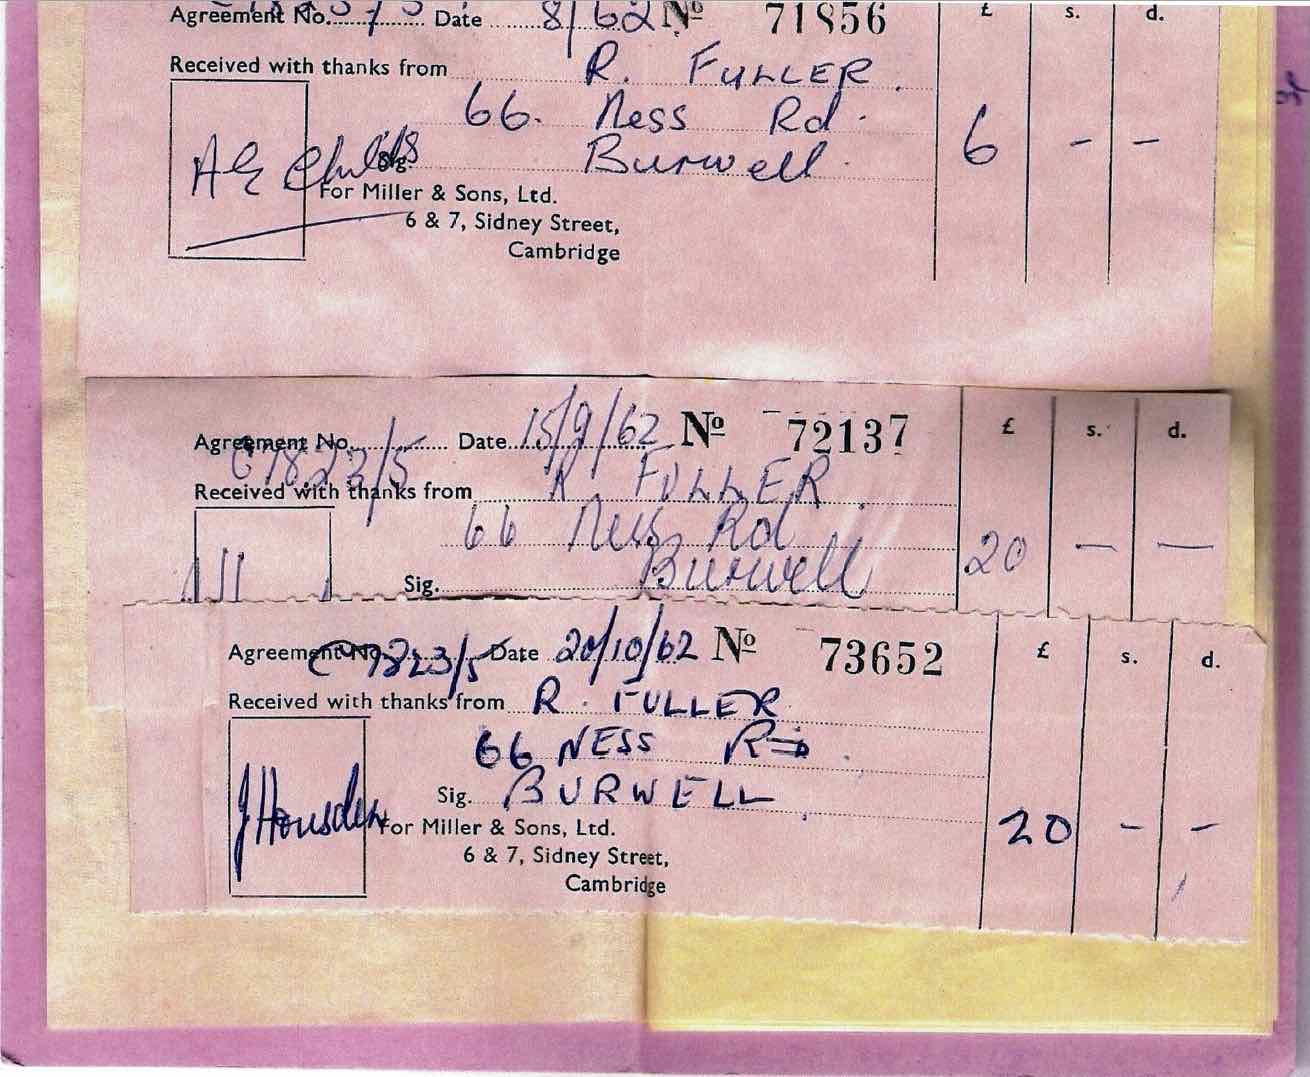 Agreement No. Date 8/62 Nº 71856 £ s. d.
Received with thanks from R. FULLER.
66. Ness Rd.
Sig. Burwell. 6 - -
A E Childs
For Miller & Sons, Ltd.
6 & 7, Sidney Street,
Cambridge
Agreement No. C7823/5 Date 15/9/62 Nº 72137 £ s. d.
Received with thanks from R. FULLER
66 Ness Rd 20 - -
Sig. Burwell
Agreement No. C7823/5 Date 20/10/62 Nº 73652 £ s. d.
Received with thanks from R. FULLER
66 NESS RD.
Sig. BURWELL
J Housden For Miller & Sons, Ltd. 20 - -
6 & 7, Sidney Street,
Cambridge